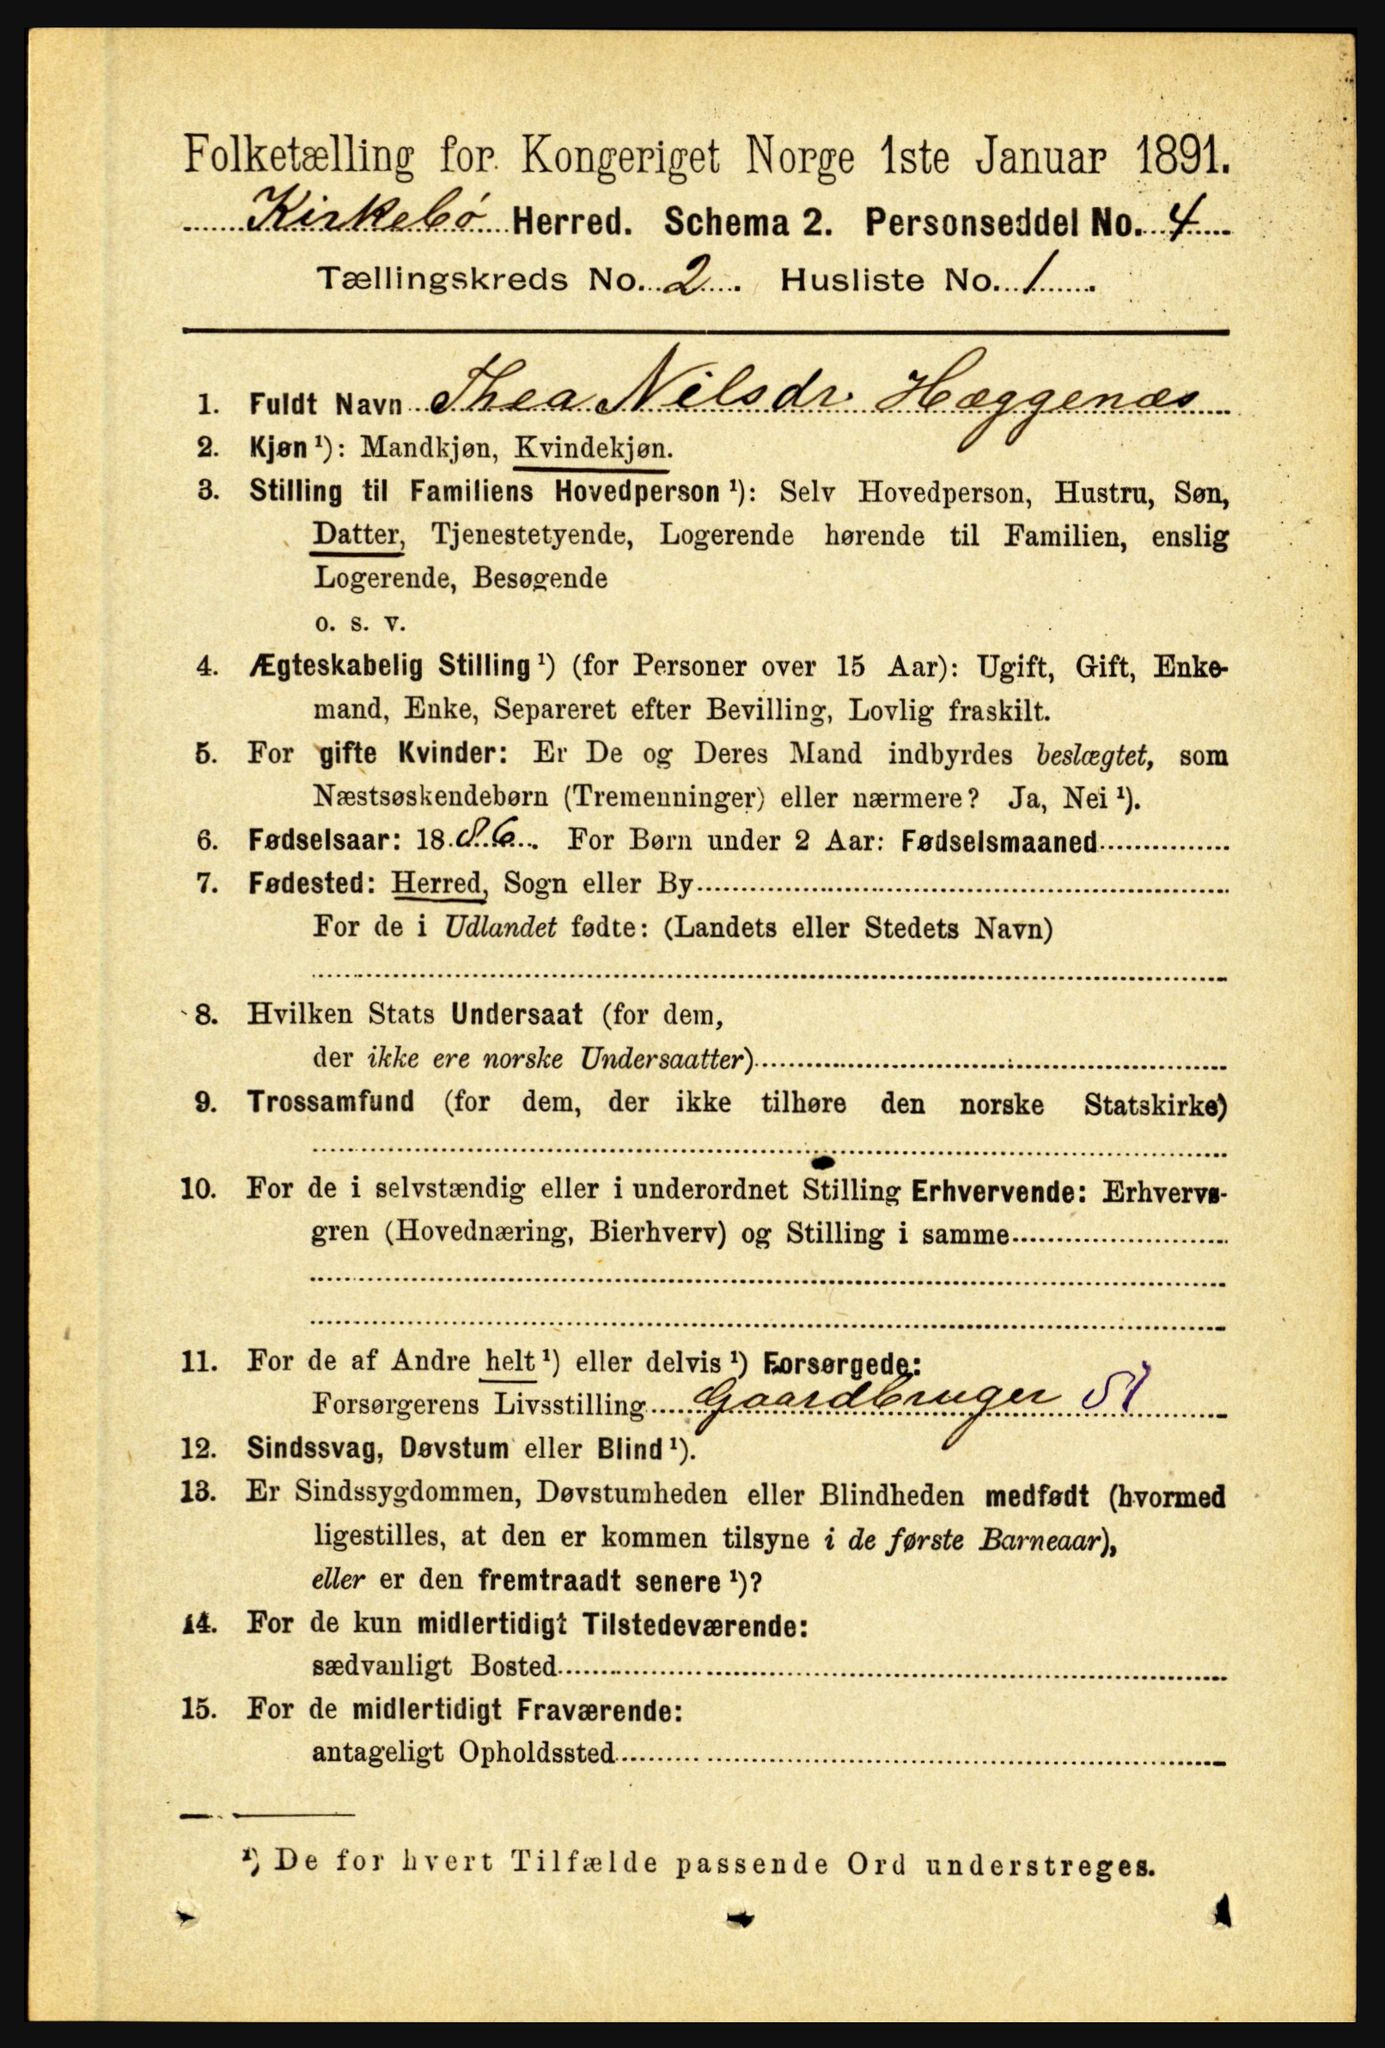 Folketælling for Kongeriget Norge 1ste Januar 1891.
Kirkebø Herred. Schema 2. Personseddel No. 4
Tællingskreds No. 2. Husliste No. 1.
1. Fuldt Navn Thea Nilsdr. Hæggenæs
2. Kjøn ¹): Mandkjøn, Kvindekjøn.
3. Stilling til Familiens Hovedperson ¹): Selv Hovedperson, Hustru, Søn,
Datter, Tjenestetyende, Logerende hørende til Familien, enslig
Logerende, Besøgende
o. s. v.
4. Ægteskabelig Stilling ¹) (for Personer over 15 Aar): Ugift, Gift, Enke-
mand, Enke, Separeret efter Bevilling, Lovlig fraskilt.
5. For gifte Kvinder: Er De og Deres Mand indbyrdes beslægtet, som
Næstsøskendebørn (Tremenninger) eller nærmere? Ja, Nei ¹).
6. Fødselsaar: 1886. For Børn under 2 Aar: Fødselsmaaned
7. Fødested: Herred, Sogn eller By
For de i Udlandet fødte: (Landets eller Stedets Navn)
8. Hvilken Stats Undersaat (for dem,
der ikke ere norske Undersaatter)
9. Trossamfund (for dem, der ikke tilhøre den norske Statskirke)
10. For de i selvstændig eller i underordnet Stilling Erhvervende: Erhvervs-
gren (Hovednæring, Bierhverv) og Stilling i samme
11. For de af Andre helt ¹) eller delvis ¹) Forsørgede:
Forsørgerens Livsstilling Gaardbruger
12. Sindssvag, Døvstum eller Blind ¹).
13. Er Sindssygdommen, Døvstumheden eller Blindheden medfødt (hvormed
ligestilles, at den er kommen tilsyne i de første Barneaar),
eller er den fremtraadt senere ¹)?
14. For de kun midlertidigt Tilstedeværende:
sædvanligt Bosted
15. For de midlertidigt Fraværende:
antageligt Opholdssted
¹) De for hvert Tilfælde passende Ord understreges.